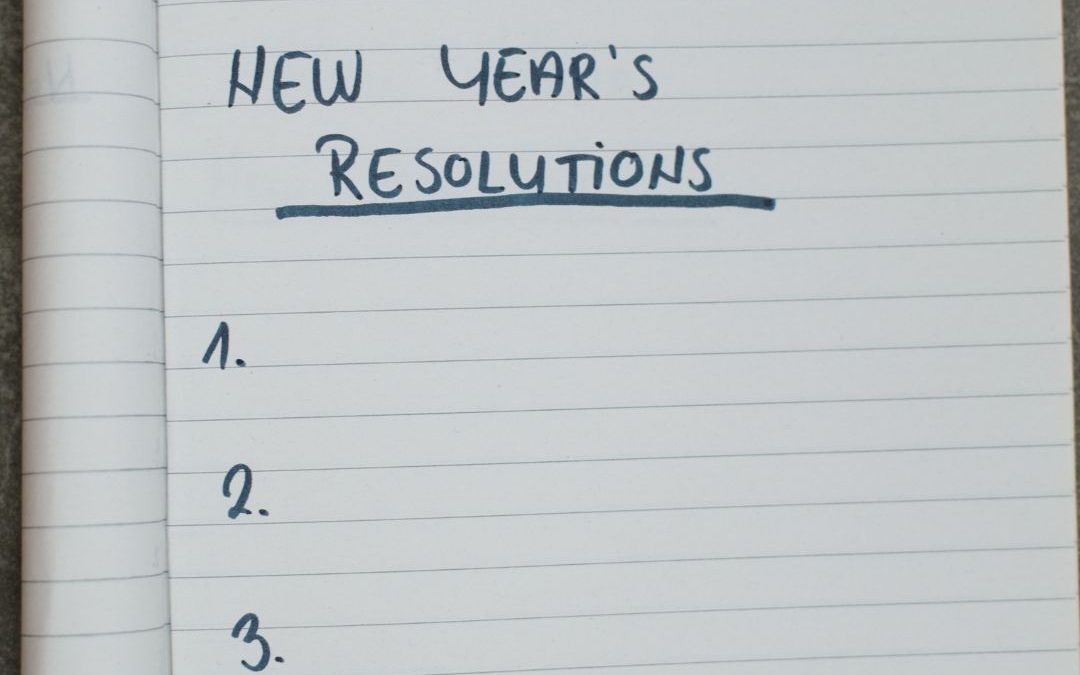 NEW YEAR'S
RESOLUTIONS
1.
2.
3.